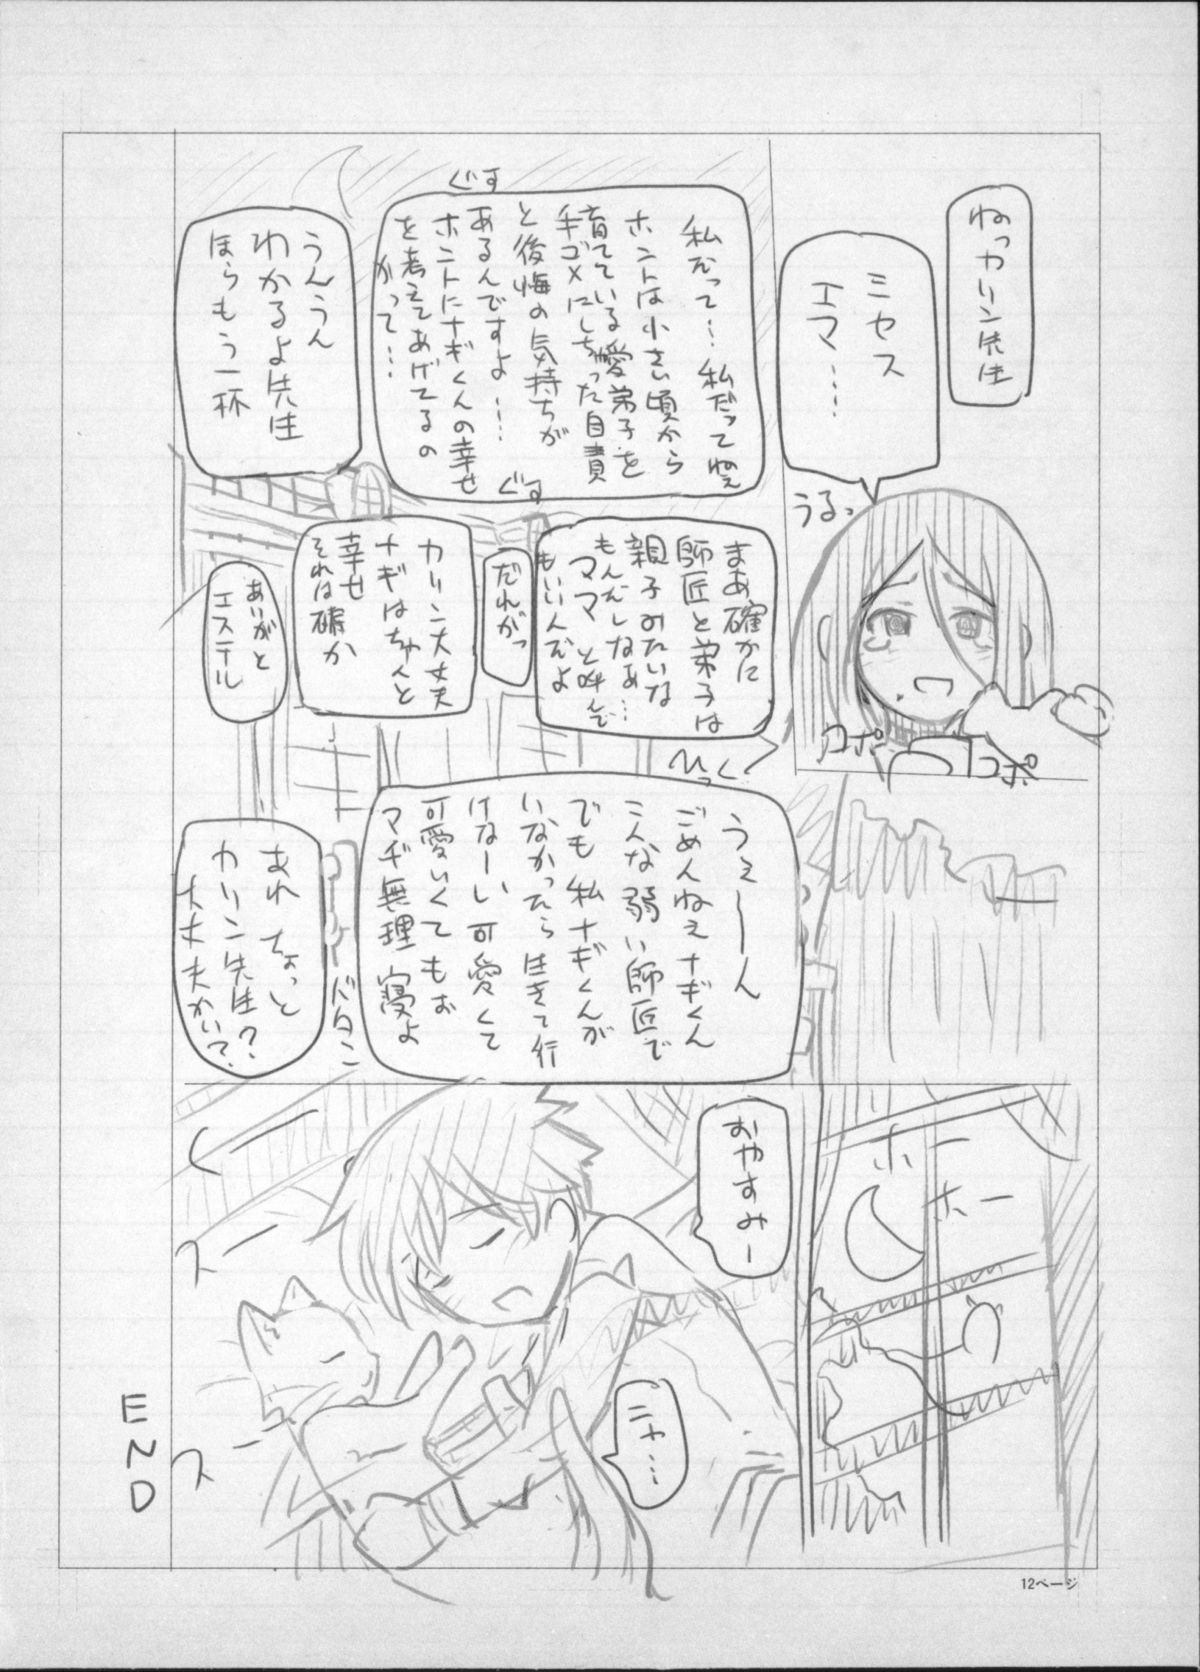 ねっカリン先生
ミセス
エマ……
うるっ
コポ
コポ
ぐす
私だって…私だってねぇ
ホントは小さい頃から
育てている愛弟子を
手ゴメにしちゃった自責
と後悔の気持ちが
あるんですよ……
ホントにナギくんの幸せ
を考えてあげてるの
かって…
ぐす
うんうん
わかるよ先生
ほらもう一杯
まあ確かに
師匠と弟子は
親子みたいな
もんだしなぁ…
ママと呼んで
もいいんだよ
だれがっ
カリン大丈夫
ナギはちゃんと
幸せ
それは確か
ありがと
エステル
ひっく
うぇーーん
ごめんねぇナギくん
こんな弱い師匠で
でも私ナギくんが
いなかったら生きて行
けなーい可愛くて
可愛くてもぉ
マヂ無理寝よ
バタン
あれちょっと
カリン先生?
大丈夫かい?
ホー
ホー
おやすみー
ニャ…
くー
スー
スー
END
12ページ